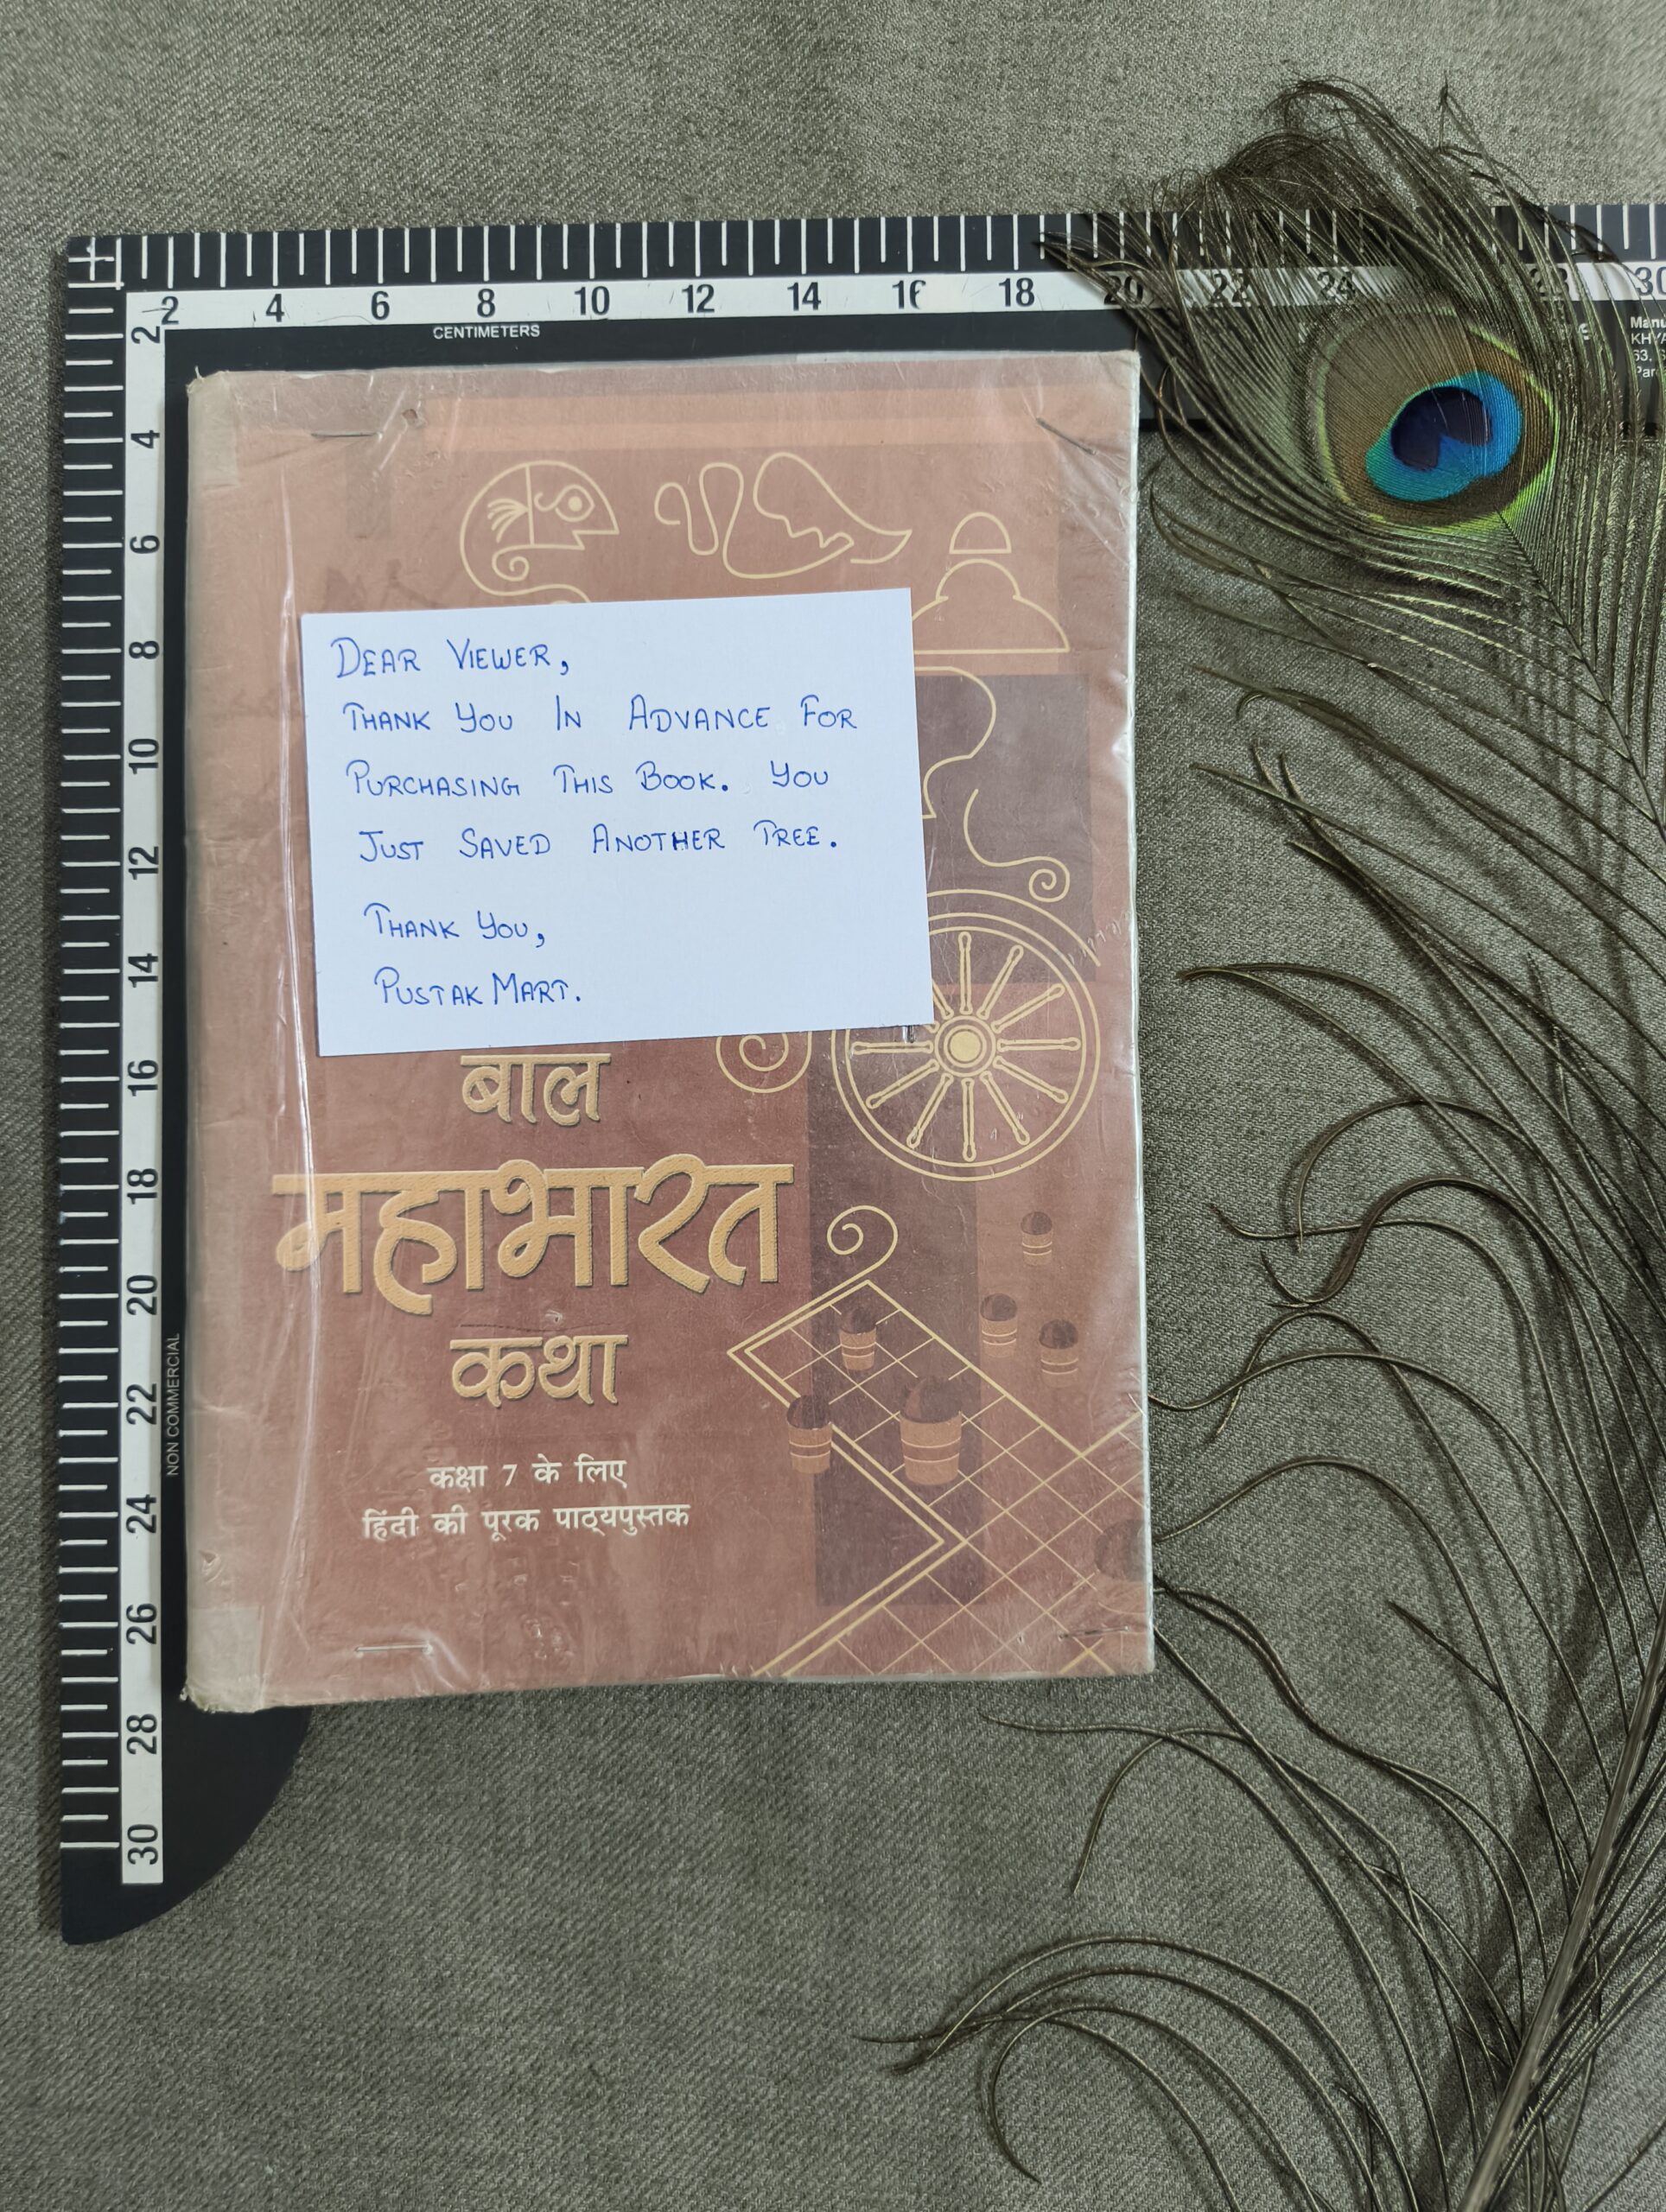 2 4 6 8 10 12 14 16 18 20 22 24 28 30
CENTIMETERS
Manu
KHYA
63, S
Parc
2
4
6
8
10
12
14
16
18
20
22
24
26
28
30
NON COMMERCIAL
DEAR VIEWER,
THANK YOU IN ADVANCE FOR
PURCHASING THIS BOOK. YOU
JUST SAVED ANOTHER TREE.
THANK YOU,
PUSTAK MART.
बाल
महाभारत
कथा
कक्षा 7 के लिए
हिंदी की पूरक पाठ्यपुस्तक